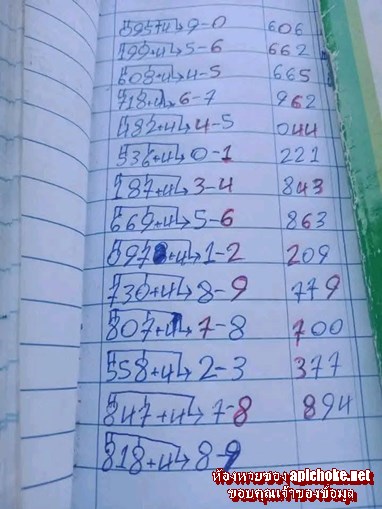 595+4→9-0 606
199+4→5-6 662
608+4→4-5 665
718+4→6-7 962
482+4→4-5 044
536+4→0-1 221
187+4→3-4 843
669+4→5-6 863
597+4→1-2 209
730+4→8-9 779
807+4→7-8 700
558+4→2-3 377
847+4→7-8 894
818+4→8-9
ห้องหวยซอง apichoke.net
ขอบคุณเจ้าของข้อมูล